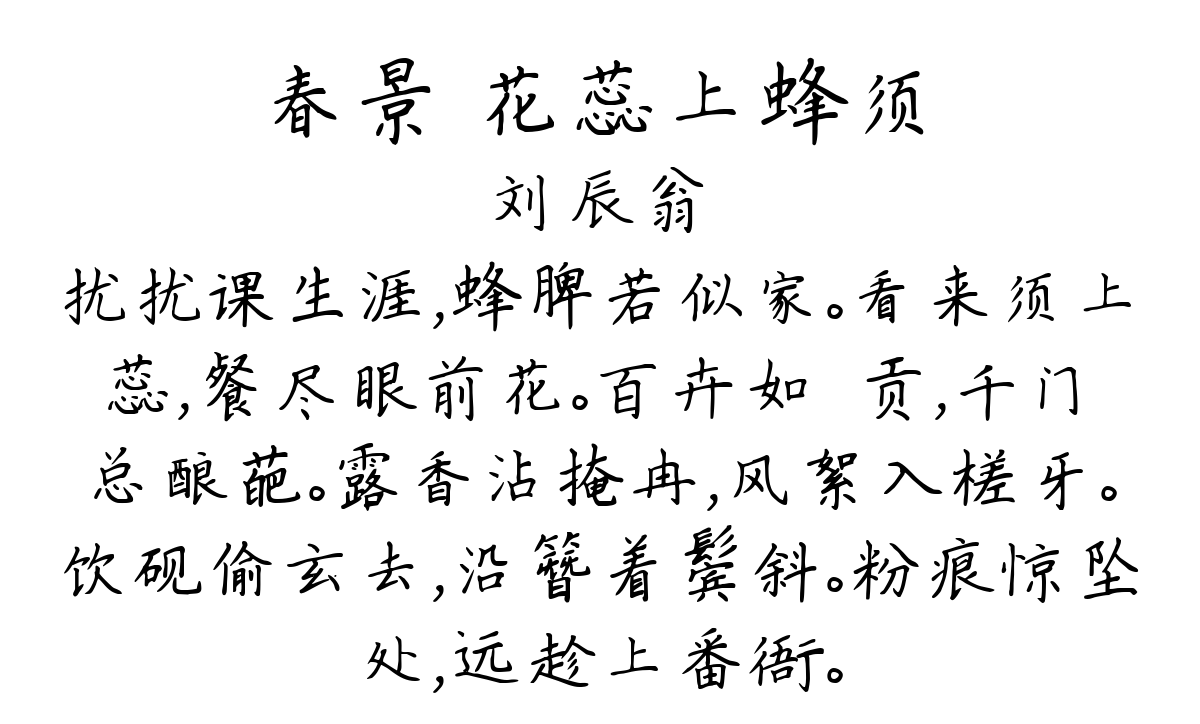 春景 花蕊上蜂须
刘辰翁
扰扰课生涯,蜂脾若似家。看来须上
蕊,餐尽眼前花。百卉如 贡,千门
总酿葩。露香沾掩冉,风絮入槎牙。
饮砚偷玄去,沿簪着鬓斜。粉痕惊坠
处,远趁上番衙。